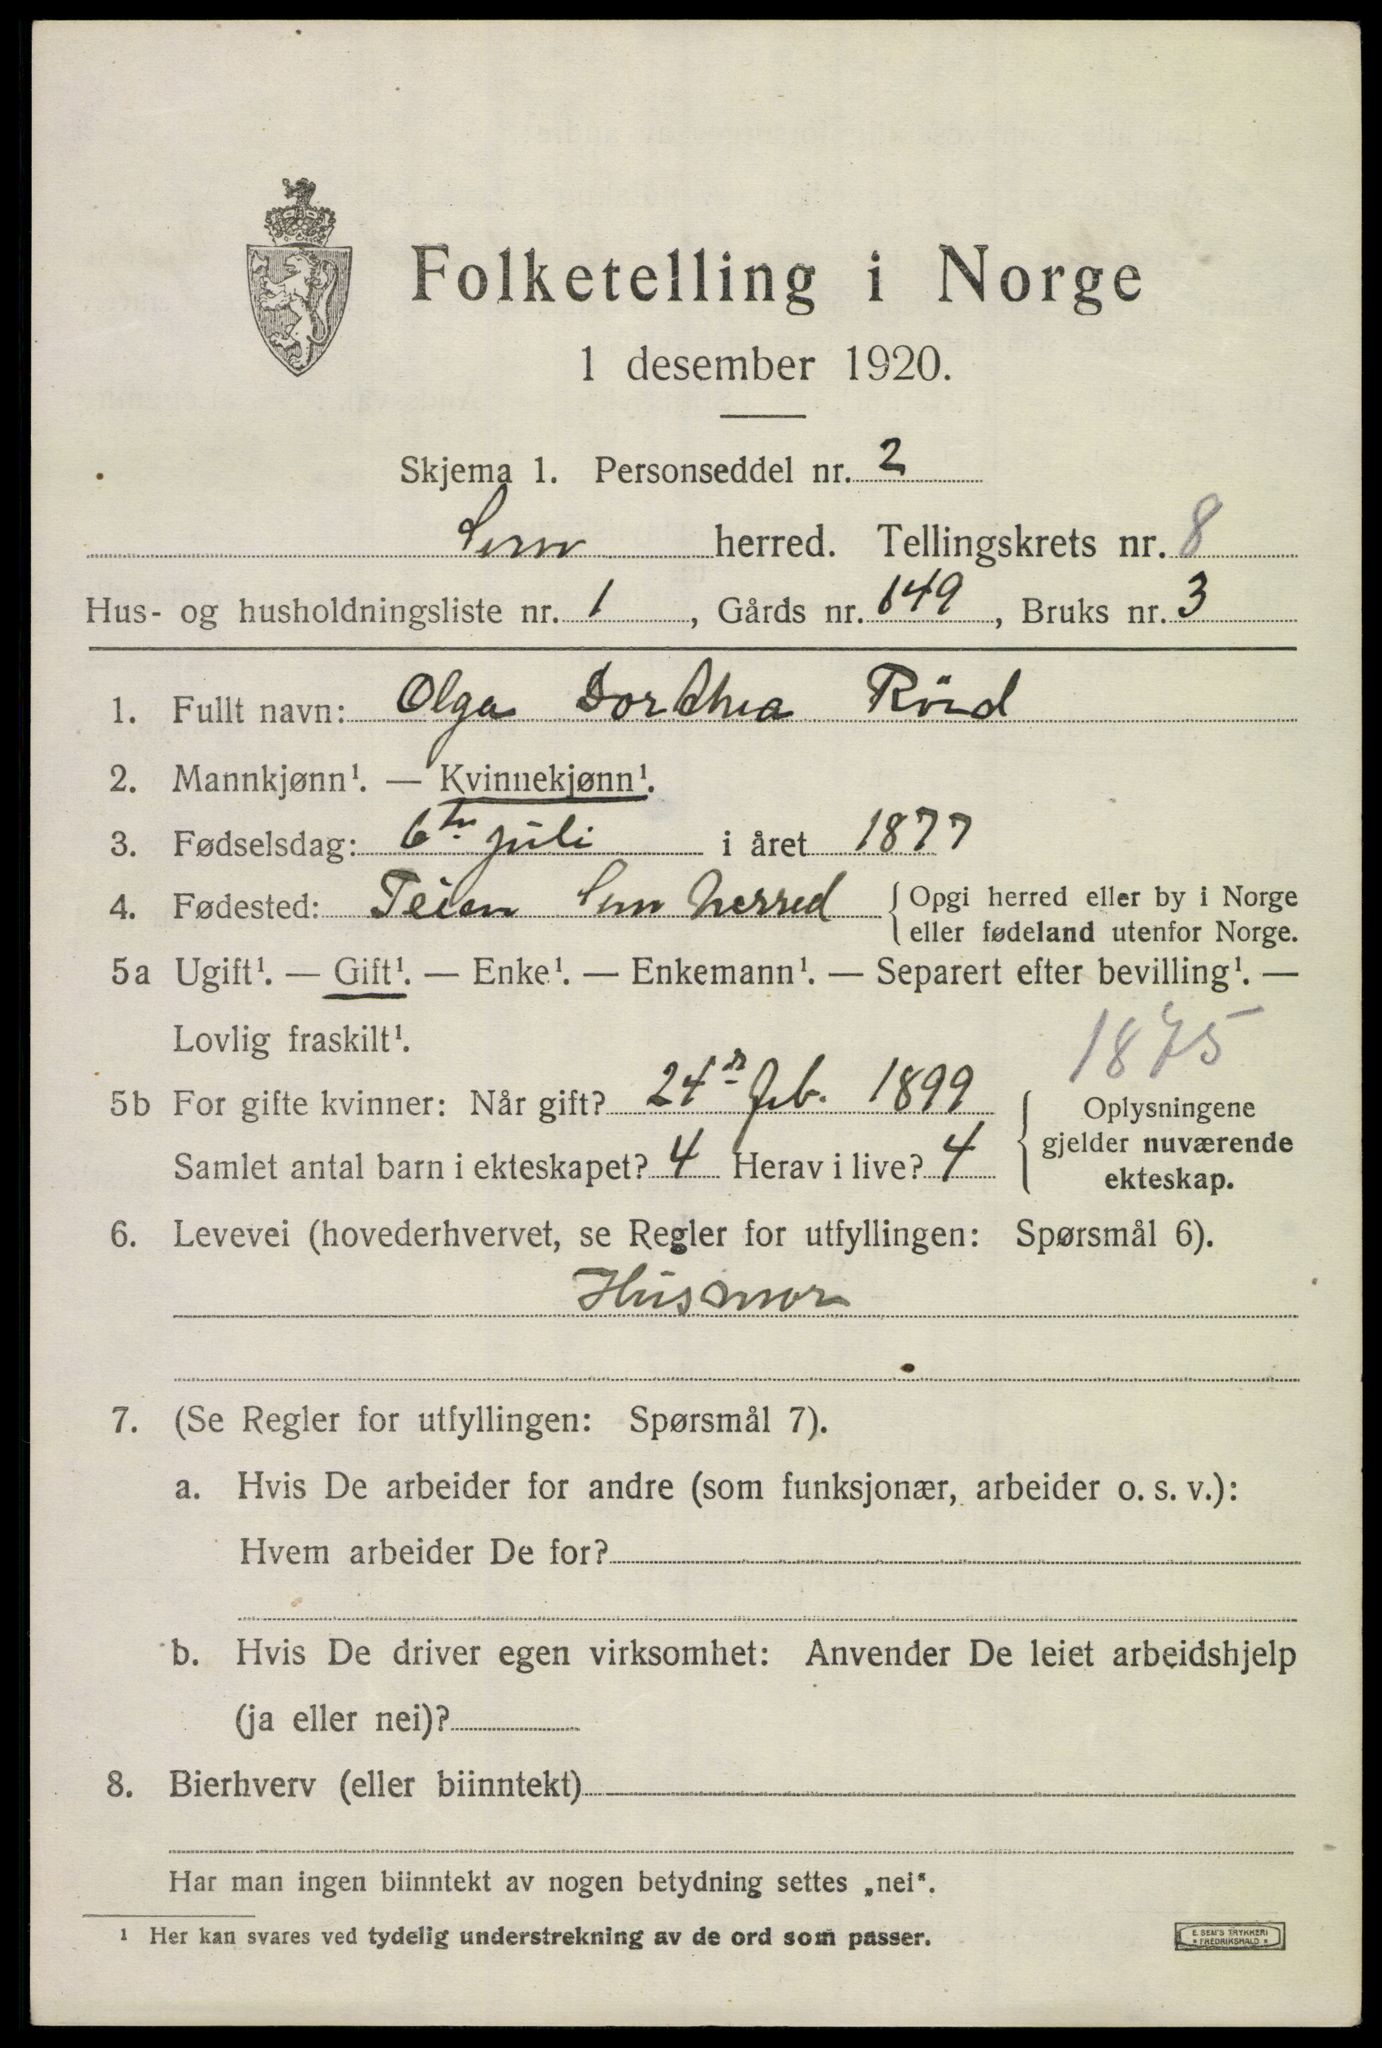 Folketelling i Norge
1 desember 1920.
Skjema 1. Personseddel nr. 2
Sem herred. Tellingskrets nr. 8
Hus- og husholdningsliste nr. 1, Gårds nr. 149, Bruks nr. 3
1. Fullt navn: Olga Dorthea Röed
2. Mannkjønn¹. — Kvinnekjønn¹.
3. Fødselsdag: 6te juli i året 1877
4. Fødested: Teien Sem herred { Opgi herred eller by i Norge
eller fødeland utenfor Norge.
5a Ugift¹. — Gift¹. — Enke¹. — Enkemann¹. — Separert efter bevilling¹. —
Lovlig fraskilt¹.
1875
5b For gifte kvinner: Når gift? 24de Feb. 1899
Samlet antal barn i ekteskapet? 4 Herav i live? 4
{ Oplysningene
gjelder nuværende
ekteskap.
6. Levevei (hovederhvervet, se Regler for utfyllingen: Spørsmål 6).
Husmor
7. (Se Regler for utfyllingen: Spørsmål 7).
a. Hvis De arbeider for andre (som funksjonær, arbeider o. s. v.):
Hvem arbeider De for?
b. Hvis De driver egen virksomhet: Anvender De leiet arbeidshjelp
(ja eller nei)?
8. Bierhverv (eller biinntekt)
Har man ingen biinntekt av nogen betydning settes „nei".
¹ Her kan svares ved tydelig understrekning av de ord som passer.
E. SEM'S TRYKKERI
* FREDRIKSHALD *